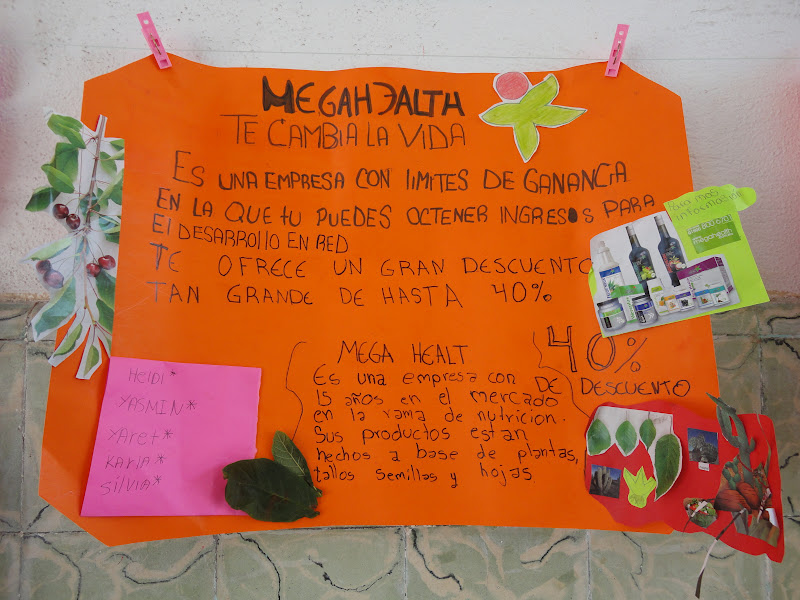 MEGAHEALTH
TE CAMBIA LA VIDA
ES UNA EMPRESA CON LIMITES DE GANANCIA
EN LA QUE TU PUEDES OCTENER INGRESOS PARA
El DESARROLLO EN RED
TE OFRECE UN GRAN DESCUENTO
TAN GRANDE DE HASTA 40%
Para mas
informacion
40%
DE DESCUENTO
MEGA HEALT
Es una empresa con
15 años en el mercado
en la rama de nutricion.
Sus productos estan
hechos a base de plantas,
tallos semillas y hojas
HEIDI*
YASMIN*
YAret*
KARLA*
SILVIA*